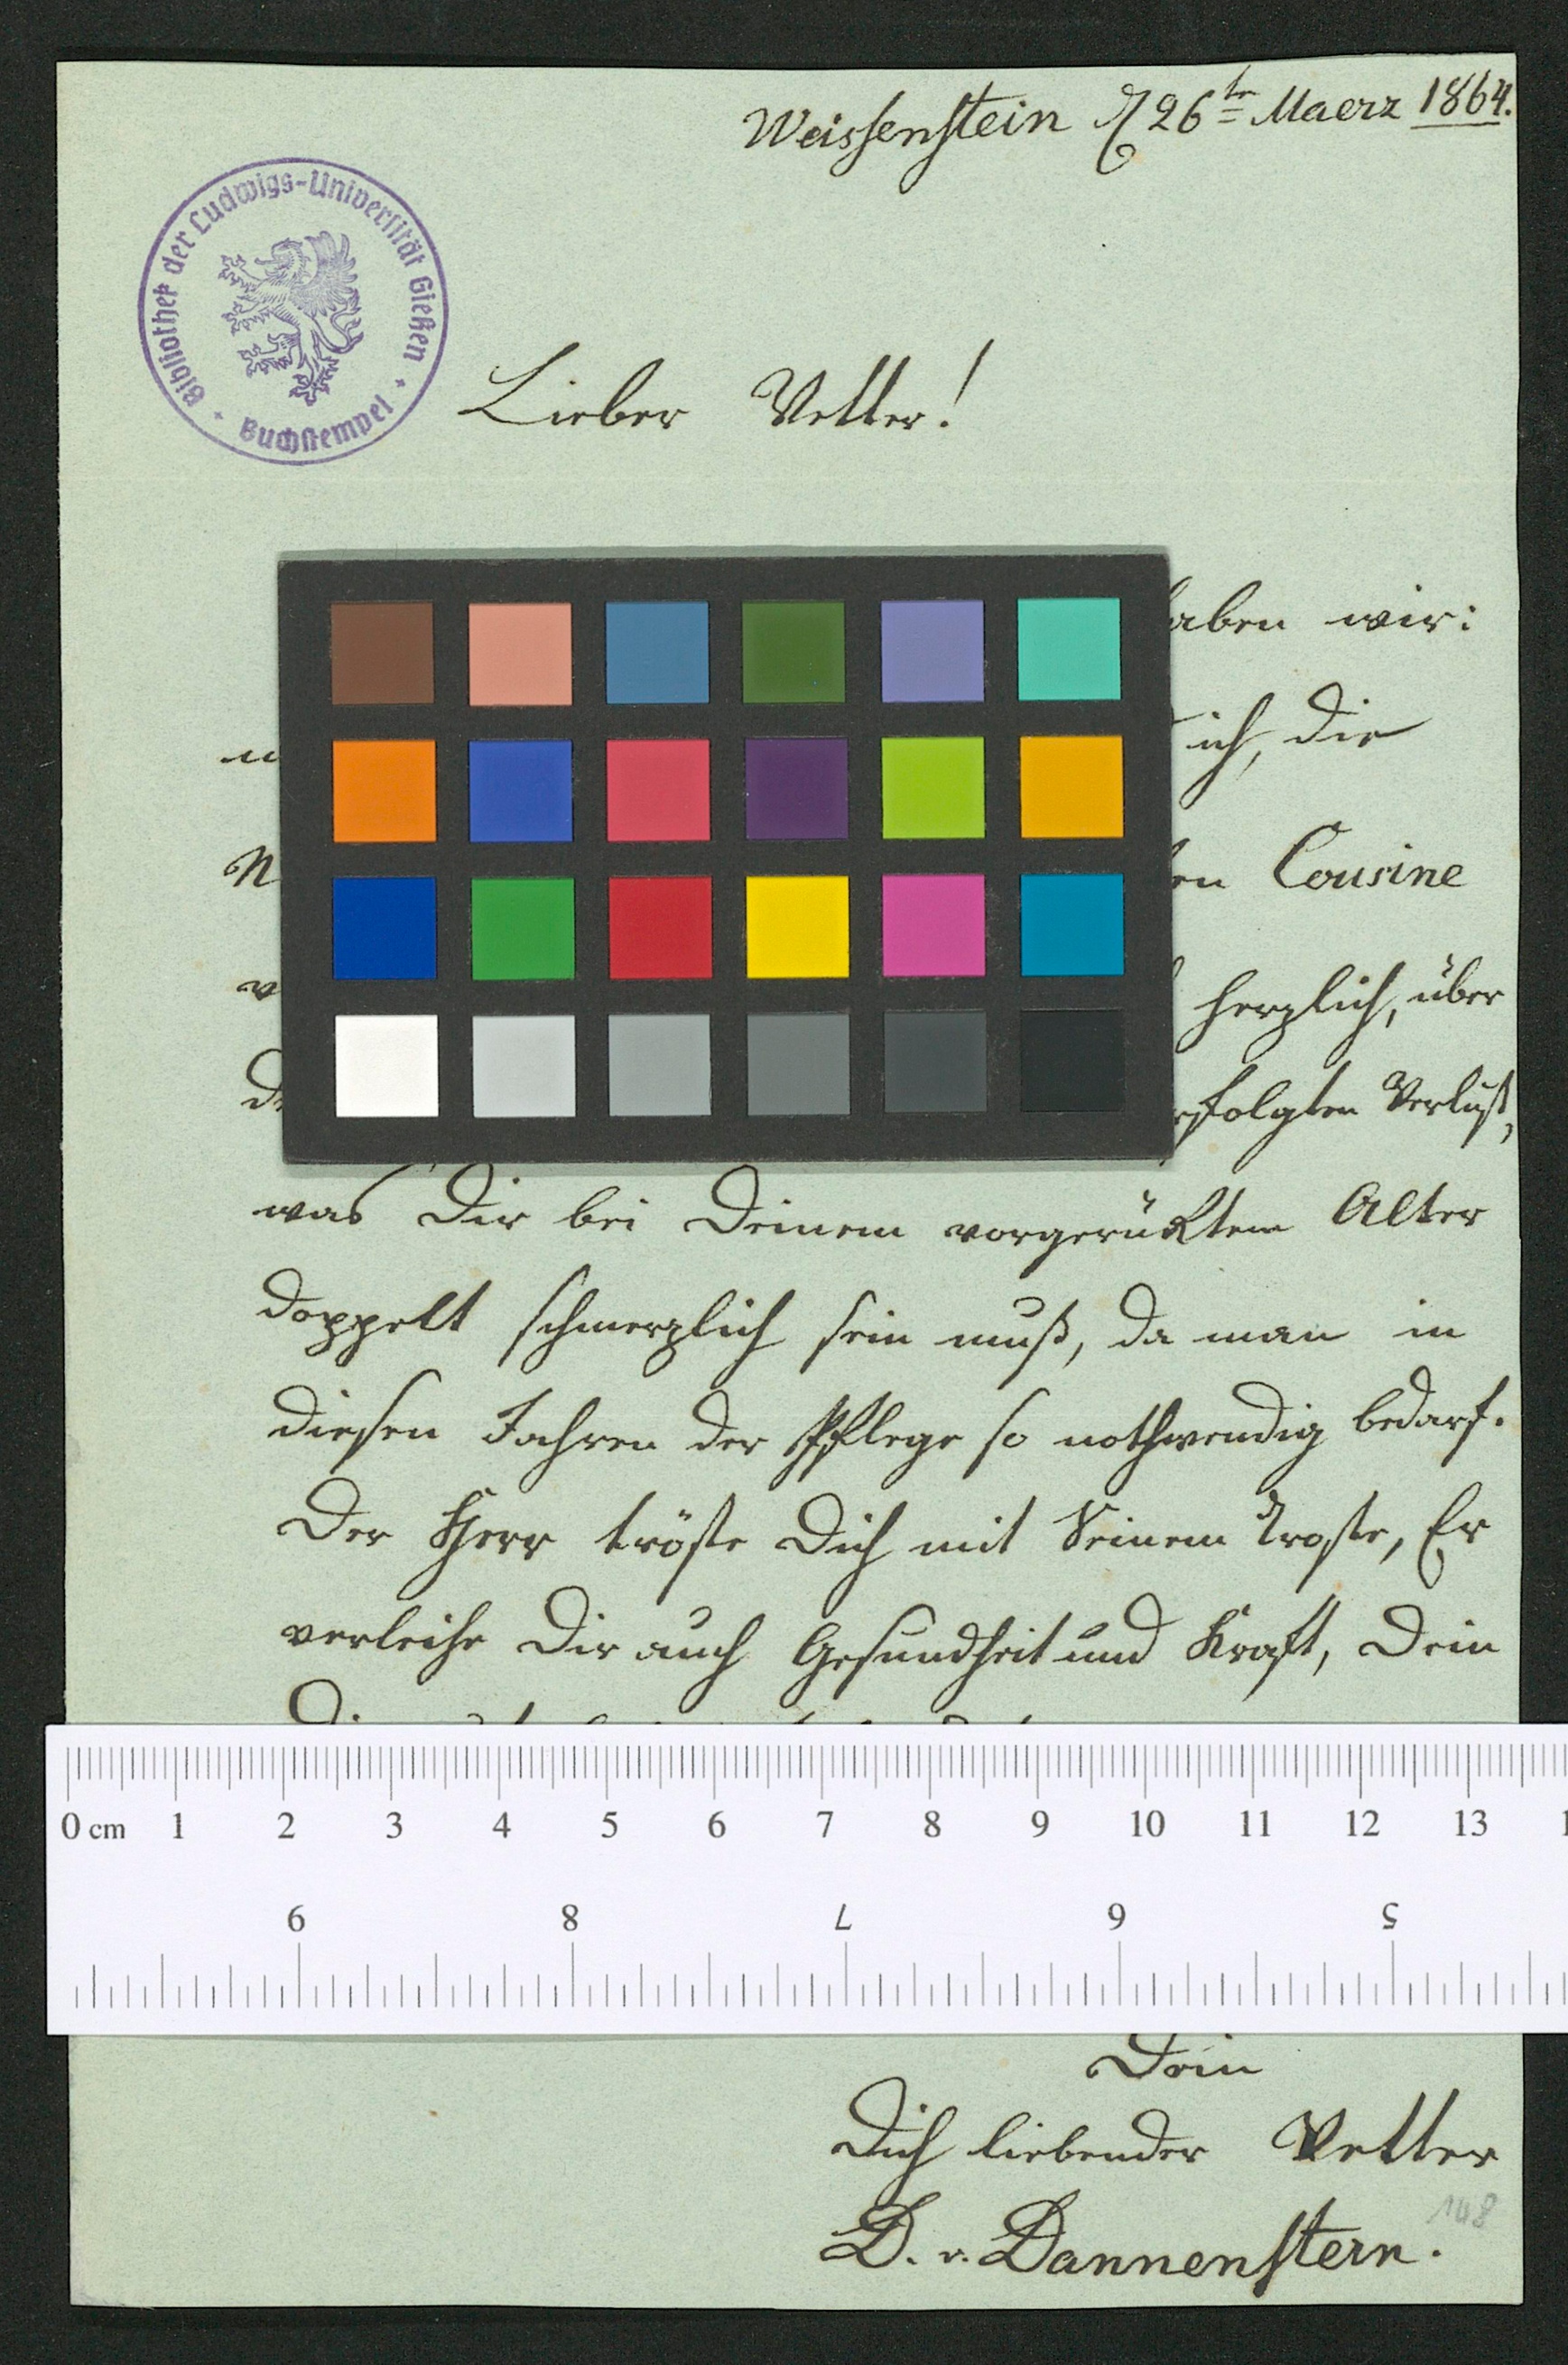 Weissenstein d 26tn Maerz 1864.
Bibliothek der Ludwigs-Universität Gießen
Buchstempel
Lieber Vetter!
aben wir:
ich, die
en Cousine
herzlich, über
erfolgten Verlust,
was Dir bei Deinem vorgerükten Alter
doppelt schmerzlich sein muß, da man in
diesen Jahren der Pflege so nothwendig bedarf.
Der Herr tröste Dich mit Seinem Troste, Er
verleihe Dir auch Gesundheit und Kraft, Dein
0 cm 1 2 3 4 5 6 7 8 9 10 11 12 13
9 8 7 6 5
Dein
Dich liebender Vetter
D. v. Dannenstern.
148